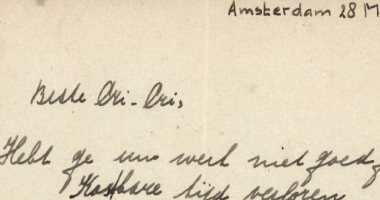 Amsterdam 28 M
Beste Cri-Cri,
Hebt ge uw werk niet goed g
Kostbare tijd verloren